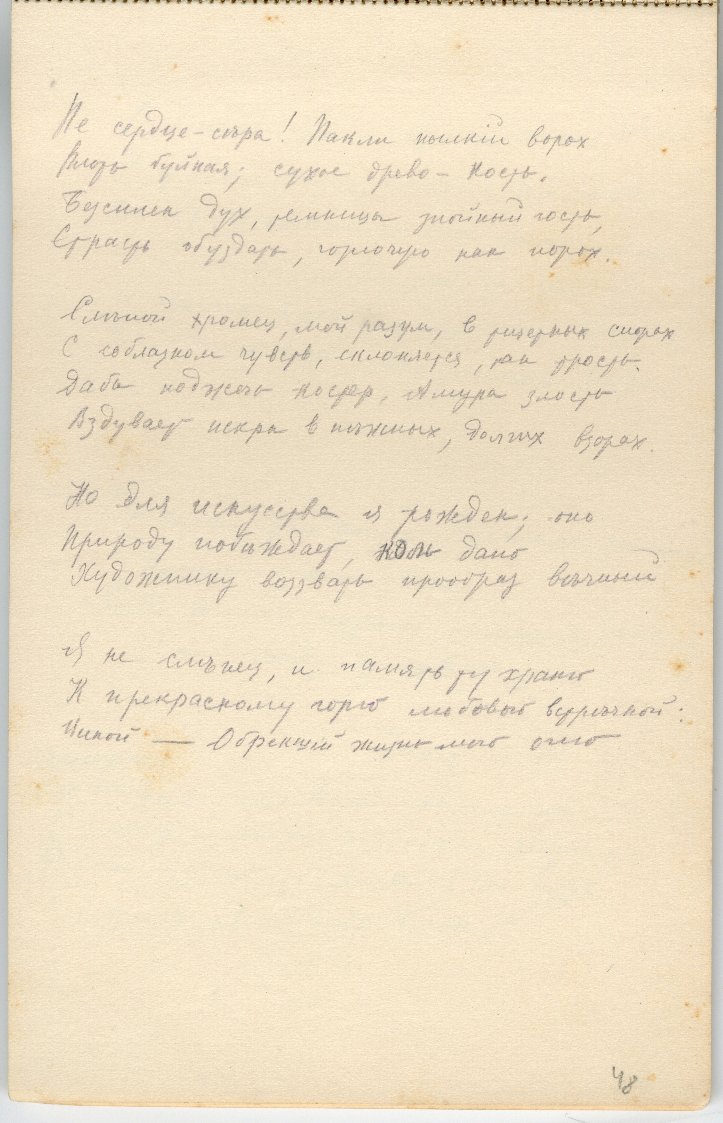 Не сердце – сѣра! Пакли пылкій ворох
Плоть буйная; сухое древо – кость.
Безсилен дух, темницы знойный гость,
Страсть обуздать, горючую как порох.
Слѣпой хромец, мой разум, в тщетных спорах
С соблазном чувств, склоняется, как трость.
Дабы поджечь костер, Амура злость
Вздувает искры в нѣжных, долгих взорах.
Но для искусства я рожден; оно
Природу побѣждает, коль дано
Художнику воззвать прообраз вѣчный
Я не слѣпец, и память ту храню
К прекрасному горю любовью встрѣчной:
Виной — Обрекшій жизнь мою огню
48